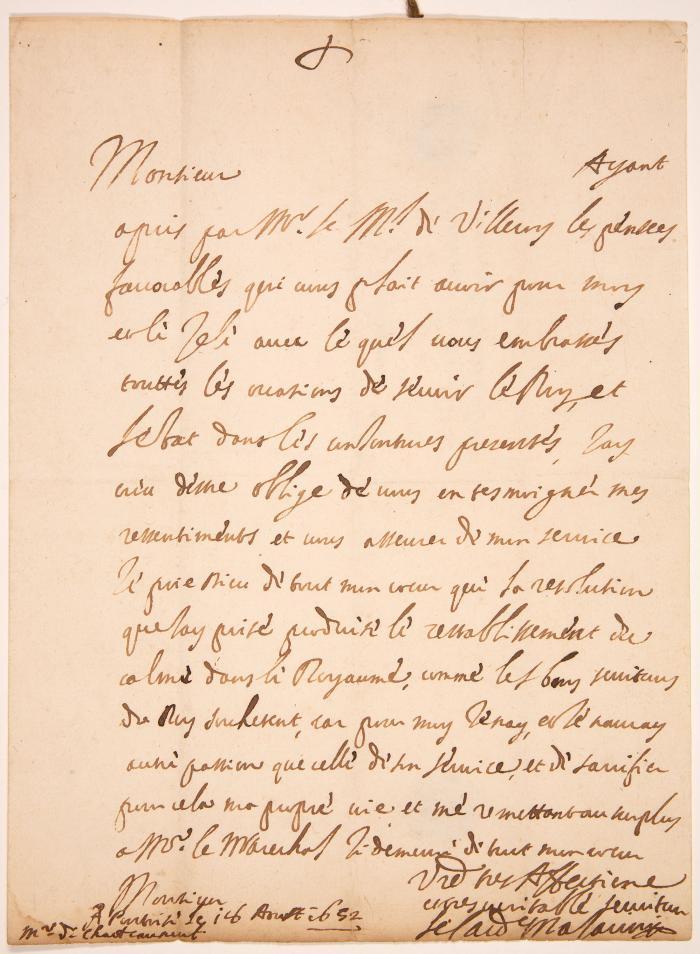 Monsieur Ayant
apris par Mr. le Ml. de Villeroy les pensées
favorables que vous plait avoir pour moy
et le Zele avec le quel vous embrassés
touttes les occasions de servir le Roy, et
l'estat dans les conionctures presentes, Jay
creu d'estre obligé de vous en tesmoigner mes
ressentiments et vous asseurer de mon service
Je prie Dieu de tout mon coeur que la resolution
que Jay prise produise le restablissement du
calme dans le Royaume, comme les bons serviteurs
du Roy souhetent, car pour moy Je nay, et le nauray
autre passion que celle de son service, et de sacrifier
pour cela ma propre vie et me remettant au surplus
a Mr. le Marechal Je demeure de tout mon coeur
Monsieur
Vre tres Affectionè
et tres veritable serviteur
A Pontoise le 16 Aoust 1652
le Card Mazarini
Mr. de Chasteauneuf